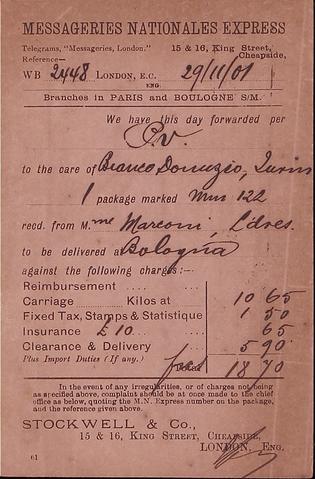 MESSAGERIES NATIONALES EXPRESS
Telegrams, "Messageries, London."
15 & 16, King Street,
Cheapside,
Reference—
WB 2448 LONDON, E.C. 29/11/01
ENG.
Branches in PARIS and BOULOGNE S/M.
We have this day forwarded per
G.V.
to the care of Bianco Donuzio, Turin
1 package marked Mnn 122
recd. from M.me Marconi, Ldres.
to be delivered at Bologna
against the following charges:—
Reimbursement .... ....
Carriage ........ Kilos at 10 65
Fixed Tax, Stamps & Statistique 1 50
Insurance £10 ... 65
Clearance & Delivery ... 5 90
Plus Import Duties (If any). 18 70
In the event of any irregularities, or of charges not being
as specified above, complaint should be at once made to the chief
office as below, quoting the M.N. Express number on the package,
and the reference given above.
STOCKWELL & Co.,
15 & 16, KING STREET, CHEAPSIDE,
LONDON, ENG.
61